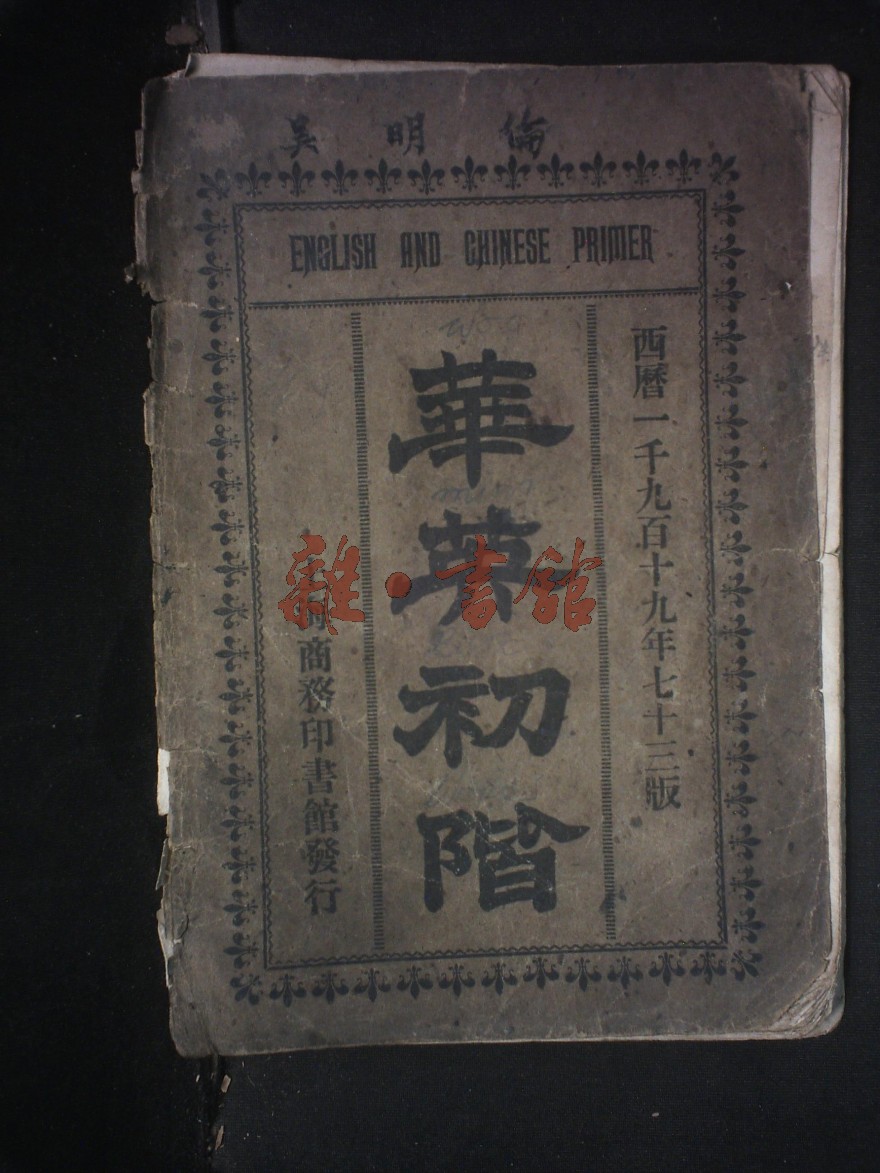 吳明倫
ENGLISH AND CHINESE PRIMER
西曆一千九百十九年七十三版
華英初階
商務印書館發行
雜·書館